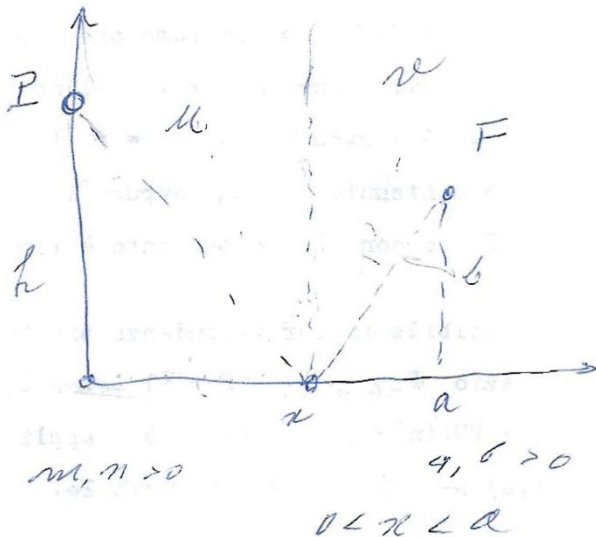 P
u
v
F
h
b
x
a
m, n > 0
a, b > 0
0 < x < a